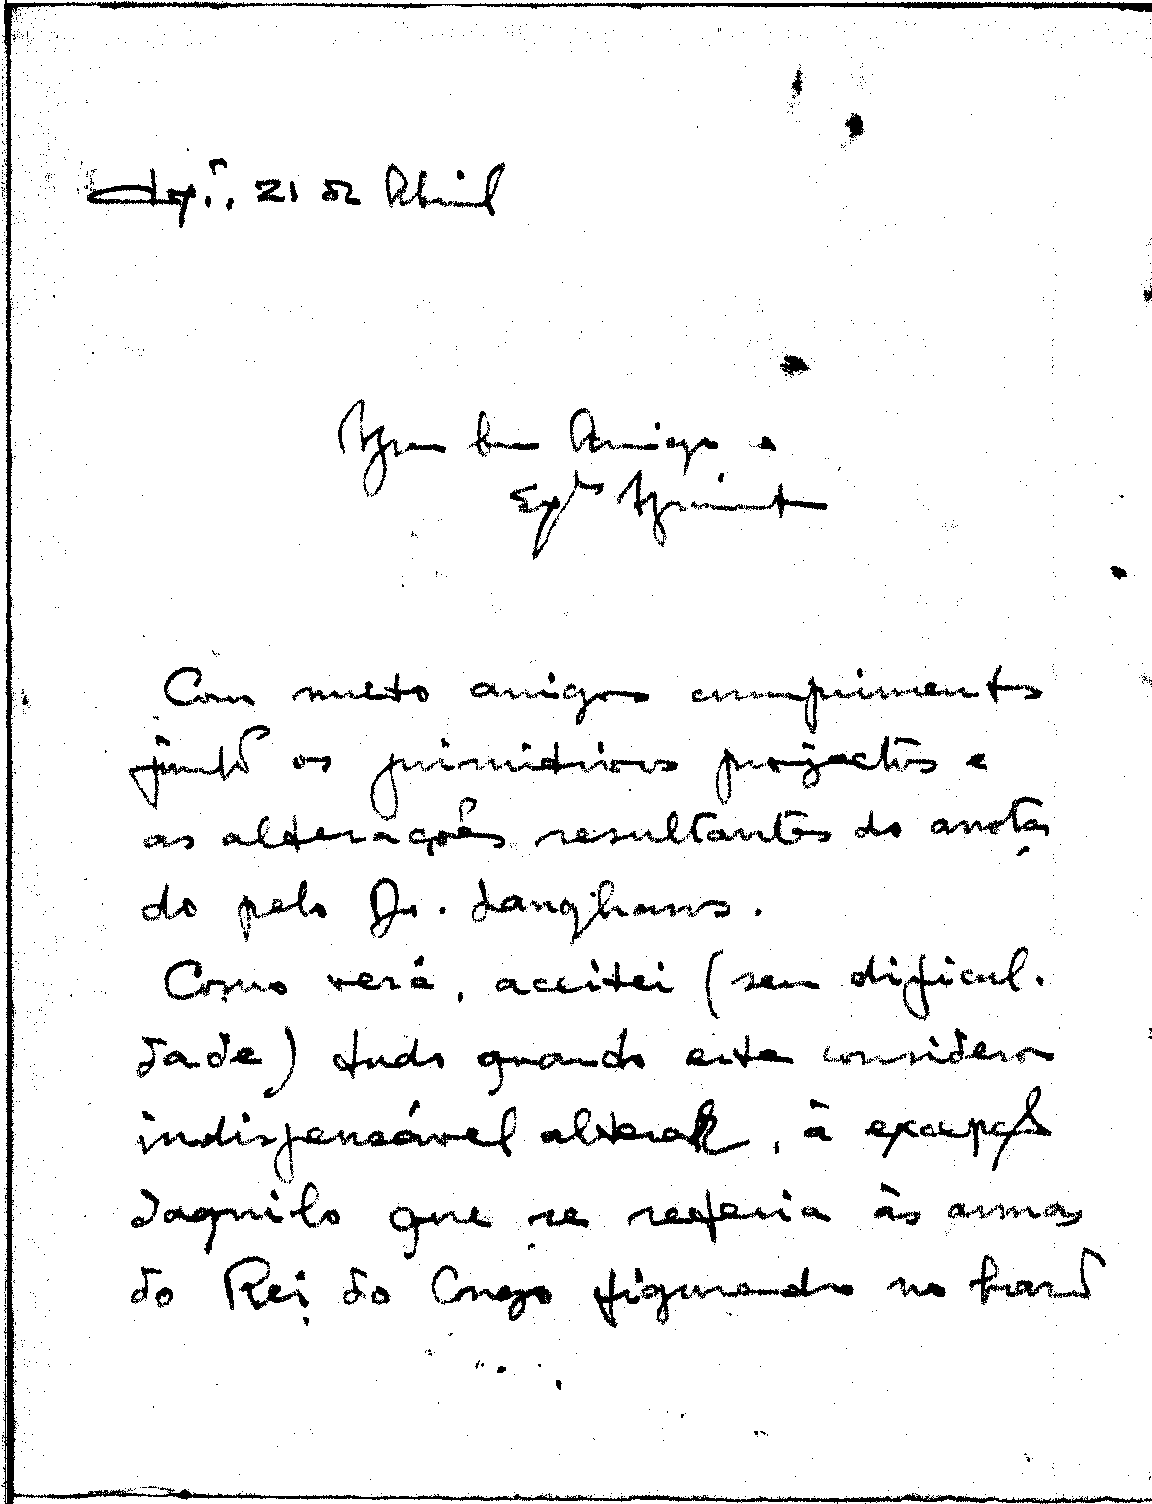 21 de Abril
Meu bom Amigo e
Exmo Ministro
Com muito amigos cumprimentos
junto os primitivos projectos e
as alterações resultantes do anota
do pelo Dr. Langhans.
Como verá, aceitei (sem dificul-
dade) tudo quando este considerou
indispensável alterar, à excepção
daquilo que se referia às armas
do Rei do Congo figurando no